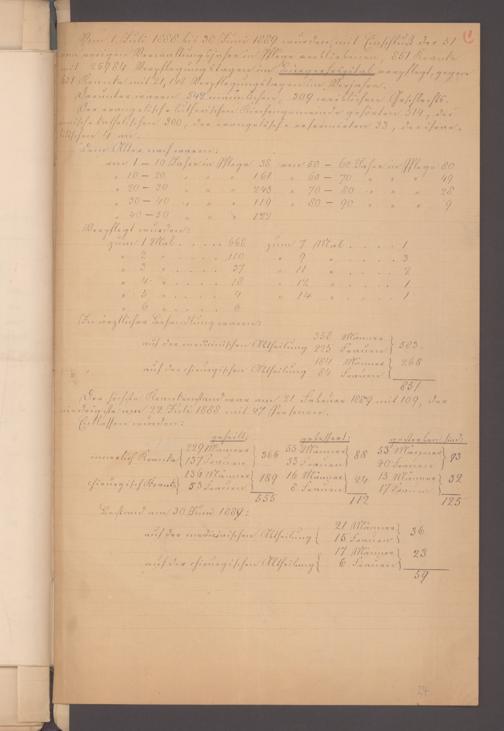 Vom 1. Juli 1888 bis 30 Juni 1889 wurden, mit Einschluß der 51
vom vorigen Verwaltungsjahre in Pflege verbliebenen, 851 Kranke
mit 25984 Verpflegungstagen im Bürgerhospital verpflegt, gegen
Kranke mit Verpflegungstagen im Vorjahre.
Darunter waren 542 männlichen, 309 weiblichen Geschlechts.
Der evangelisch-lutherischen Kirchengemeinde gehörten 514, der
römisch-katholischen 300, der evangelisch-reformirten 33, der israe-
litischen 4 an.
Dem Alter nach waren:
von 1 – 10 Jahre in Pflege 38 von 50 – 60 Jahre in Pflege 80
" 10 – 20 " " " 161 " 60 – 70 " " " 49
" 20 – 30 " " " 243 " 70 – 80 " " " 28
" 30 – 40 " " " 119 " 80 – 90 " " " 9
" 40 – 50 " " "
Verpflegt wurden:
zum 1 Mal 668 zum 7 Mal 1
" 2 " 110 " 9 " 3
" 3 " 37 " 11 " 2
" 4 " 18 " 12 " 1
" 5 " " 14 " 1
" 6 "
In ärztlicher Behandlung waren:
auf der medicinischen Abtheilung 358 Männer 225 Frauen } 583
auf der chirurgischen Abtheilung 184 Männer 84 Frauen } 268
851
Der höchste Krankenstand war am 21 Februar 1889 mit 109, der
niedrigste am 22. Juli 1888 mit 47 Personen.
Entlassen wurden:
geheilt: gebessert: gestorben sind:
innerlich Kranke { 229 Männer 137 Frauen } 366 55 Männer 33 Frauen } 88 53 Männer 40 Frauen } 93
chirurgisch Kranke { 136 Männer 53 Frauen } 189 16 Männer 8 Frauen } 24 15 Männer 17 Frauen } 32
555 112 125
Bestand am 30 Juni 1889:
auf der medicinischen Abtheilung { 21 Männer 15 Frauen } 36
auf der chirurgischen Abtheilung { 17 Männer 6 Frauen } 23
59
24